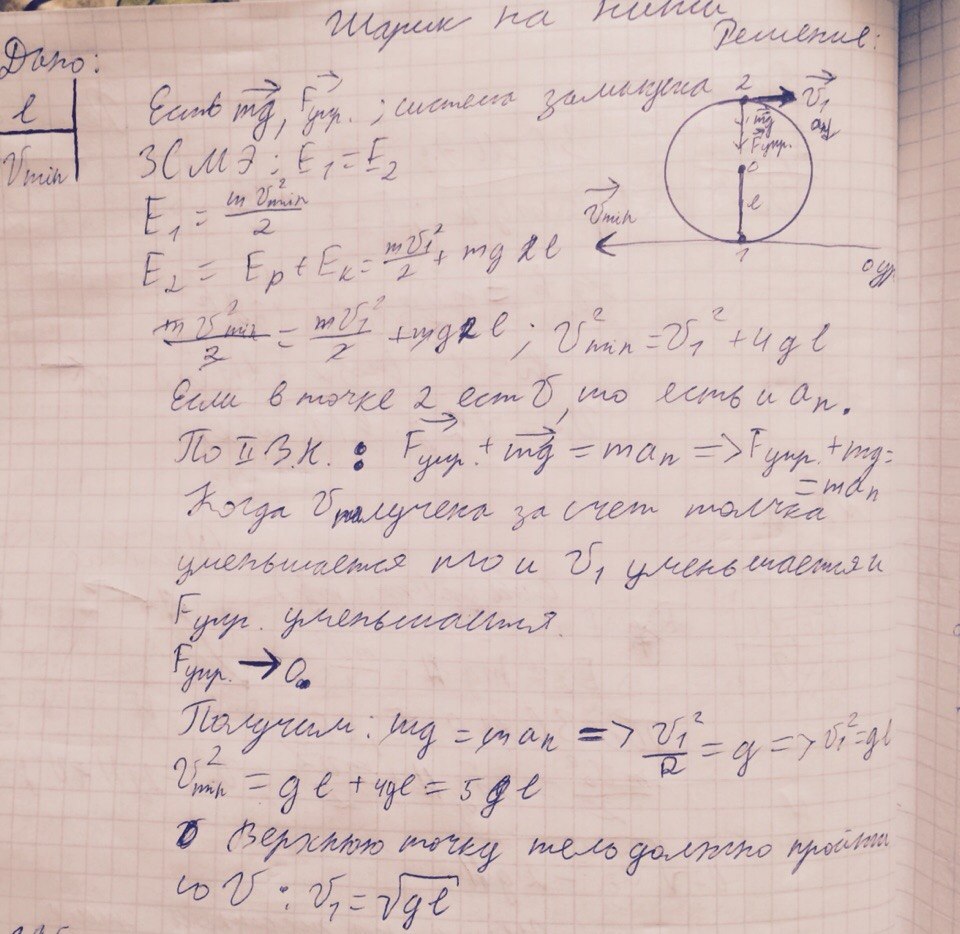 Шарик на нити
Дано:
l
Vmin
Решение:
Есть mg, Fупр. ; система замкнута
ЗСМЭ: E₁ = E₂
E₁ = mv²min/2
E₂ = Eр + Eк = mv₁²/2 + mg2l
mv²min/2 = mv₁²/2 + mg2l ; v²min = v₁² + 4gl
Если в точке 2 ест v, то есть и aₙ.
По II З.Н. : Fупр. + mg = maₙ => Fупр. + mg =
= maₙ
Когда v получена за счет толчка
уменьшается то и v₁ уменьшается и
Fупр. уменьшается
Fупр. → 0.
Получим: mg = maₙ => v₁²/R = g => v₁² = gl
v²min = gl + 4gl = 5gl
Верхнюю точку тело должно пройти
со v : v₁ = √gl
2
v₁
aₙ
mg
Fупр.
0
l
vmin
1
0 ур